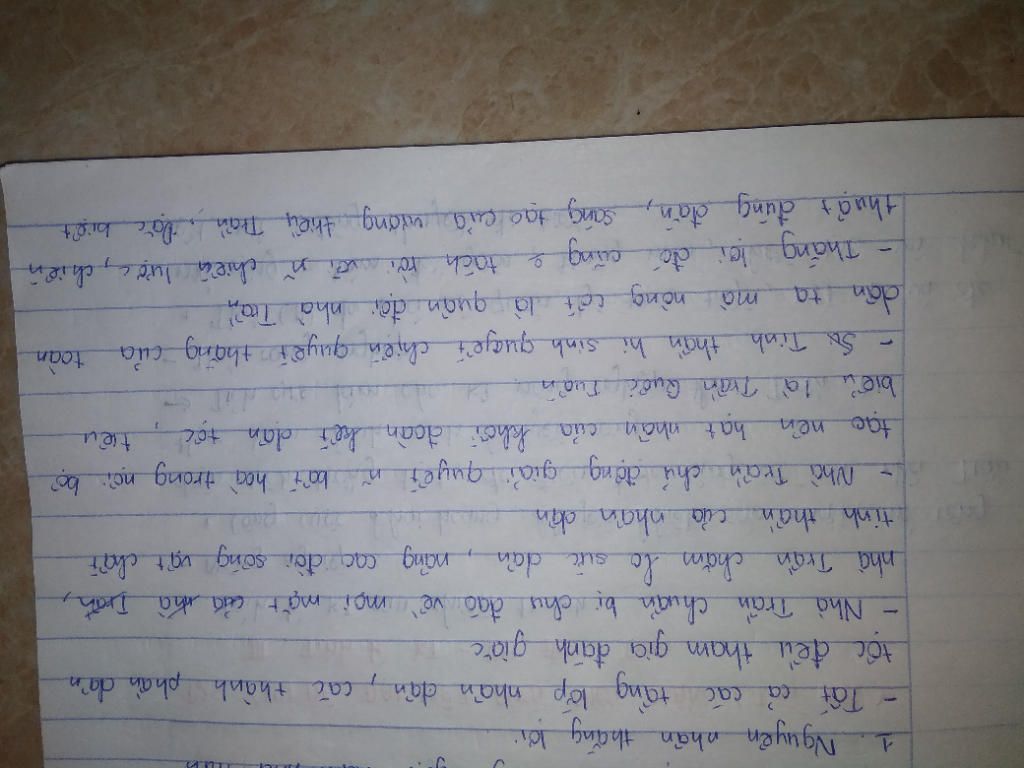 1. Nguyên nhân thắng lợi
- Tất cả các tầng lớp nhân dân, các thành phần dân
tộc đều tham gia đánh giặc
- Nhà Trần chuẩn bị chu đáo về mọi mặt của nhà Trần,
nhà Trần chăm lo sức dân, nâng cao đời sống vật chất
tinh thần của nhân dân
- Nhà Trần chủ động giải quyết n~ bất hoà trong nội bộ
tạo nên hạt nhân của khối đoàn kết dân tộc, tiêu
biểu là Trần Quốc Tuấn
- Tinh thần hi sinh quyết chiến quyết thắng của toàn
dân ta mà nòng cốt là quân đội nhà Trần
- Thắng lợi đó cũng k tách rời với n~ chiến lược, chiến
thuật đúng đắn, sáng tạo của vương triều Trần, Đặc biệt